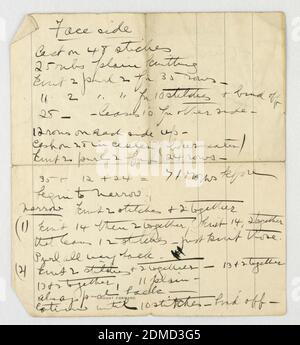 Face side
Cast on 48 stitches
25 ribs plain knitting
Knit 2 purl 2 for 35 rows -
" 2 " " for 10 stitches & bind off
25 - - leaves 10 for other side -
12 rows on each side up -
Cast on 25 in center
Knit 2 purl 2 for 24 rows -
35 + 12 + 24 = 71 rows before
begin to narrow.
Narrow Knit 2 stitches & 2 together
(1) Knit 14 then 2 together, Knit 14, 2 together
that leaves 12 stitches - just knit those
Purl all way back.
(2) Knit 2 stitches & 2 together - 13 & 2 together
13 & 2 together, 11 plain -
always purl back
until 10 stitches - bind off -
AMOUNT FORWARD
alamy
DMD3G5